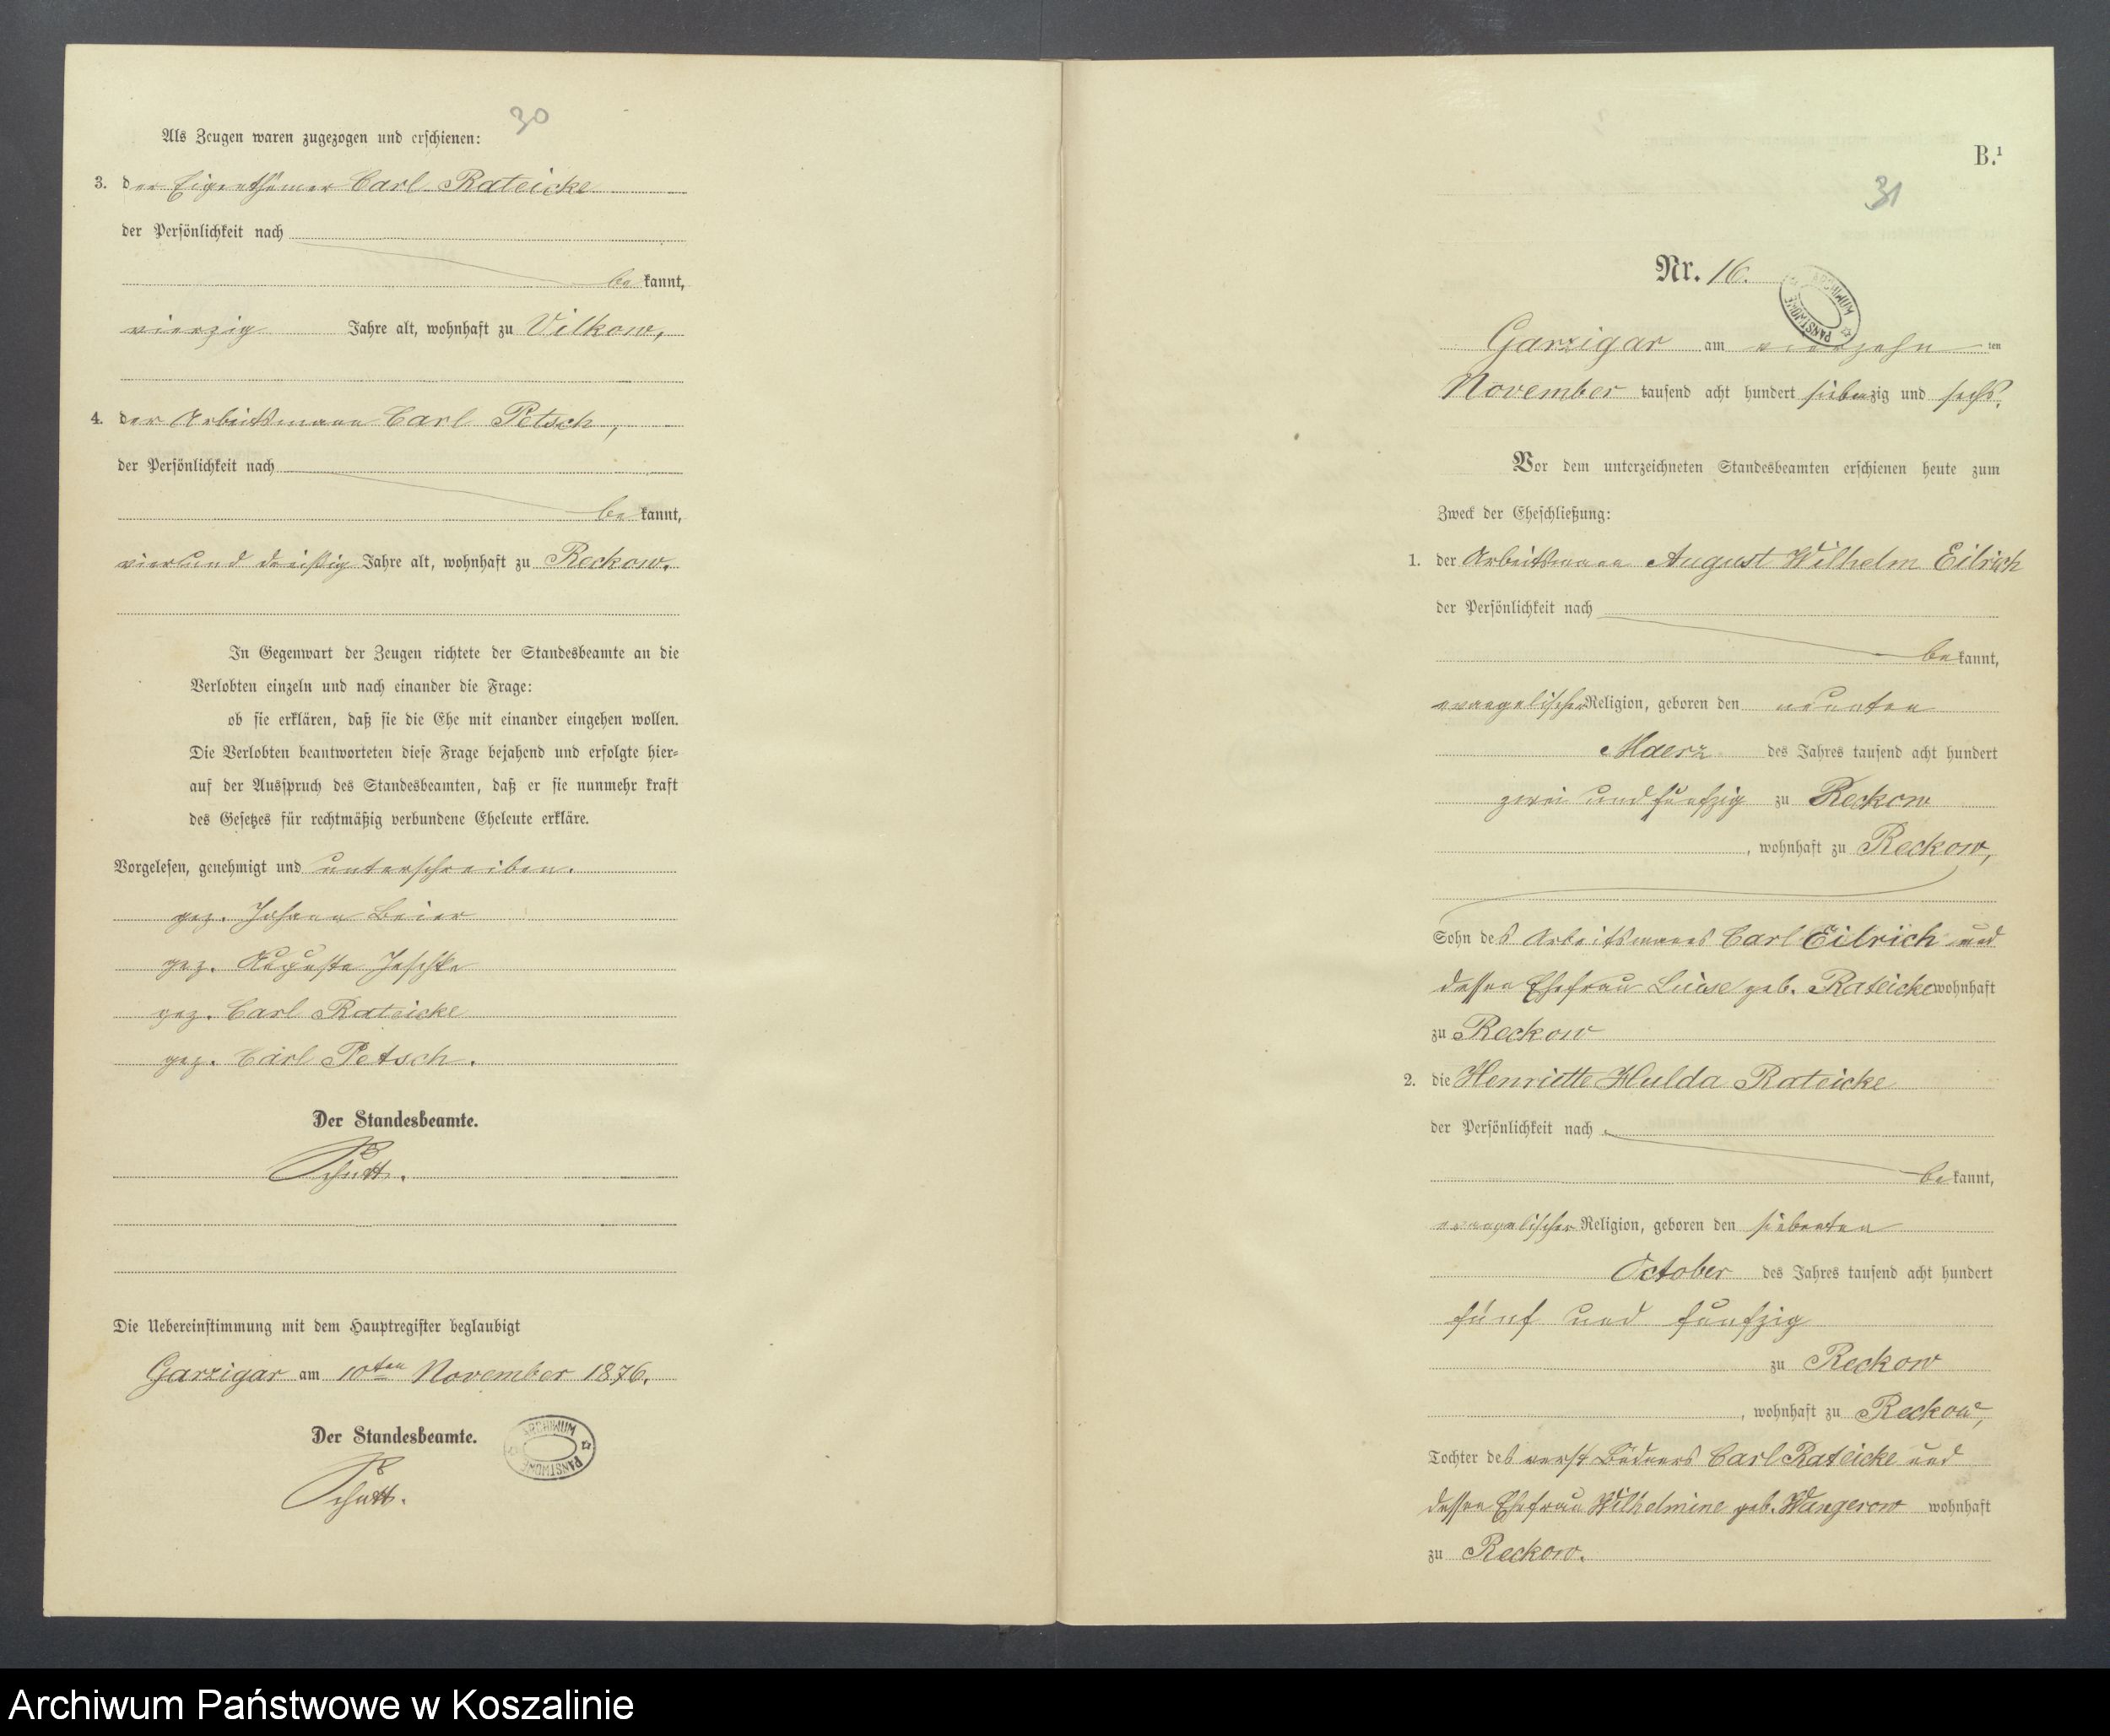 30
Als Zeugen waren zugezogen und erschienen:
3. der Eigenthümer Carl Rateicke
der Persönlichkeit nach
bekannt,
vierzig Jahre alt, wohnhaft zu Vilkow,
4. der Arbeitsmann Carl Petsch,
der Persönlichkeit nach
bekannt,
vierund dreißig Jahre alt, wohnhaft zu Reckow.
In Gegenwart der Zeugen richtete der Standesbeamte an die
Verlobten einzeln und nach einander die Frage:
ob sie erklären, daß sie die Ehe mit einander eingehen wollen.
Die Verlobten beantworteten diese Frage bejahend und erfolgte hier-
auf der Ausspruch des Standesbeamten, daß er sie nunmehr kraft
des Gesetzes für rechtmäßig verbundene Eheleute erkläre.
Vorgelesen, genehmigt und unterschreiben.
gez. Johann Beier
gez. Auguste Jeschke
gez. Carl Rateicke
gez. Carl Petsch.
Der Standesbeamte.
Schutt.
Die Uebereinstimmung mit dem Hauptregister beglaubigt
Garzigar am 10ten November 1876.
Der Standesbeamte.
ARCHIWUM PAŃSTWOWE
Schutt.
B.1
31
Nr. 16.
ARCHIWUM PAŃSTWOWE
Garzigar am vierzehn ten
November tausend acht hundert siebenzig und sechs.
Vor dem unterzeichneten Standesbeamten erschienen heute zum
Zweck der Eheschließung:
1. der Arbeitsmann August Wilhelm Eilrich
der Persönlichkeit nach
bekannt,
evangelischer Religion, geboren den neunten
Maerz des Jahres tausend acht hundert
zwei und funfzig zu Reckow
, wohnhaft zu Reckow,
Sohn des Arbeitsmanns Carl Eilrich und
dessen Ehefrau Luise geb. Rateicke wohnhaft
zu Reckow
2. die Henriette Hulda Rateicke
der Persönlichkeit nach
bekannt,
evangelischer Religion, geboren den siebenten
October des Jahres tausend acht hundert
fünf und funfzig
zu Reckow
, wohnhaft zu Reckow,
Tochter des verst Büdners Carl Rateicke und
dessen Ehefrau Wilhelmine geb. Wangerow wohnhaft
zu Reckow.
Archiwum Państwowe w Koszalinie